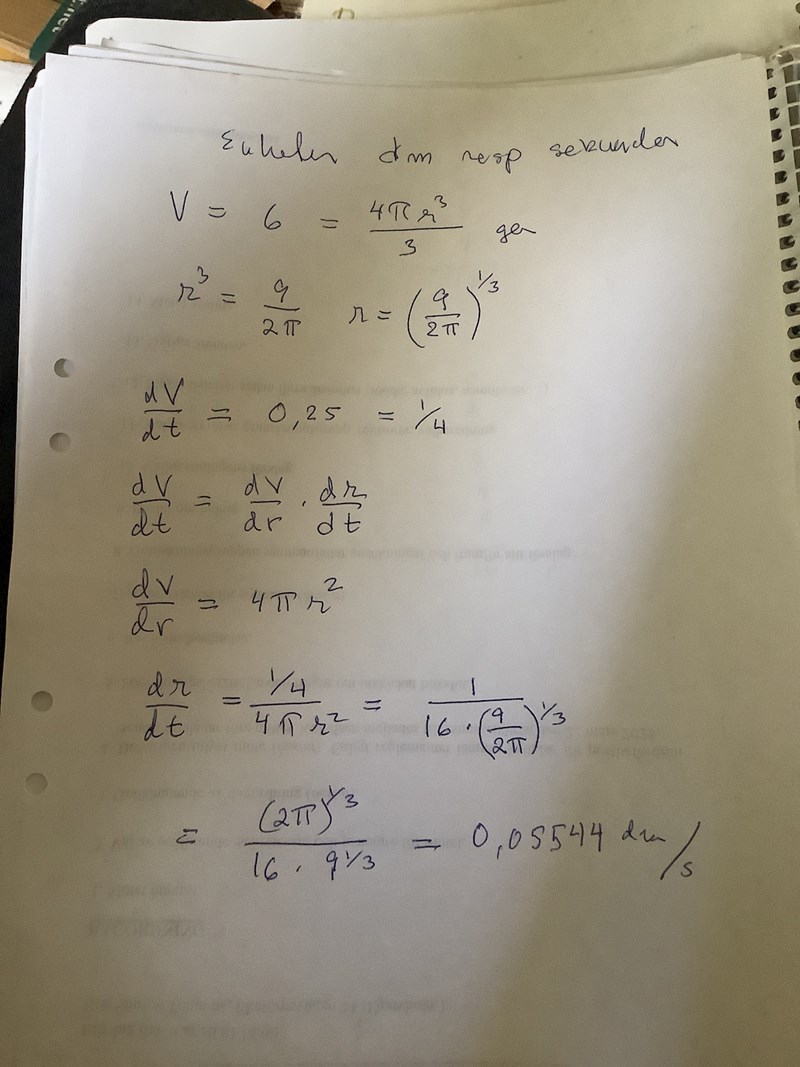 Enheter dm resp sekunder
V = 6 = 4πr³/3 ger
r³ = 9/2π r = (9/2π)^1/3
dV/dt = 0,25 = 1/4
dV/dt = dV/dr · dr/dt
dV/dr = 4πr²
dr/dt = 1/4 / 4πr² = 1 / 16 · (9/2π)^1/3
= (2π)^1/3 / 16 · 9^1/3 = 0,05544 dm/s